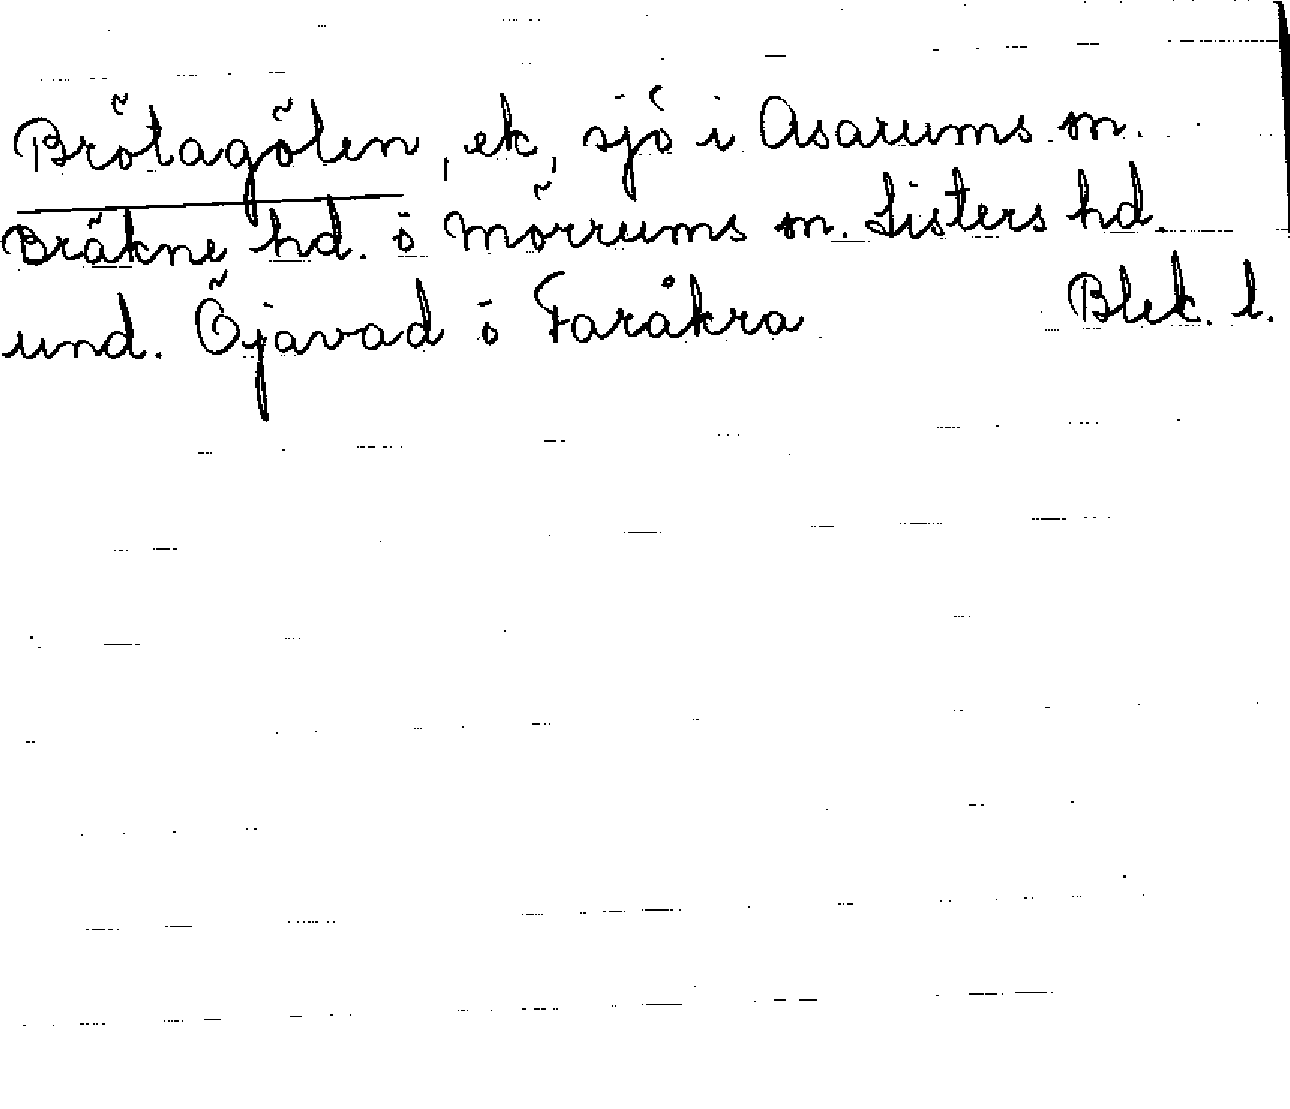 Brötagölen, ek, sjö i Asarums sn.
Bräkne hd. o Mörrums sn. Listers hd.
und. Öjavad o Faråkra Blek. l.